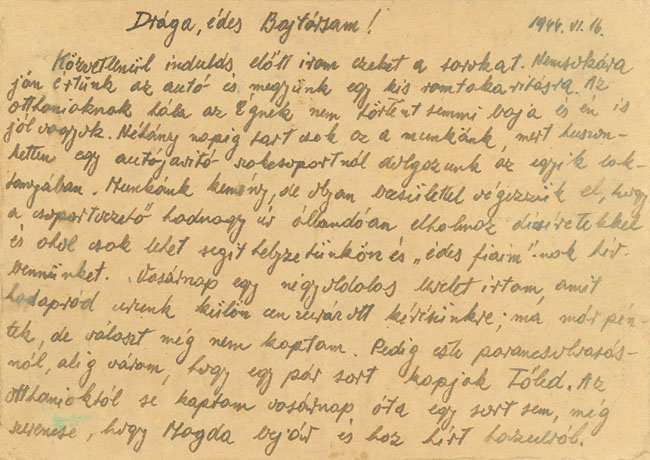 Drága, édes Bajtársam! 1944. VI. 16.
Közvetlenül indulás előtt irom ezeket a sorokat. Nemsokára
jön értünk az autó és megyünk egy kis romtakaritásra. Az
otthoniaknak hála az Égnek nem történt semmi baja és én is
jól vagyok. Néhány napig tart csak ez a munkánk, mert huszon-
ketten egy autójavitó rakcsoportnál dolgozunk az egyik lak-
tanyában. Munkánk kemény, de olyan becsülettel végezzük el, hogy
a csoportvezető hadnagy úr állandóan elhalmoz dicséretekkel
és ahol csak lehet segit helyzetünkön és „édes fiaim"-nak hív
bennünket. Vasárnap egy négyoldalas levelet irtam, amit
hadapród urunk külön cenzurázott kérésünkre; ma már pén-
tek, de választ még nem kaptam. Pedig este parancsolvasás-
nál, alig várom, hogy egy pár sort kapjak Tőled. Az
otthoniaktól se kaptam vasárnap óta egy sort sem, még
szerencse, hogy Magda bejár és hoz hírt hazulról.